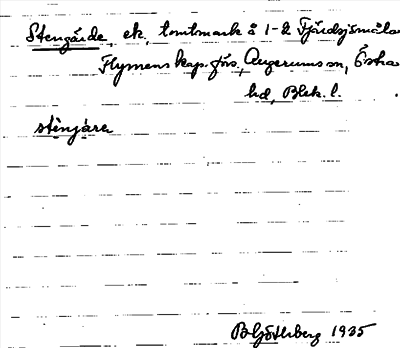 Stengärde, ek, tomtmark å 1-2 Fjärdsjömåla
Flymens kap.förs, Augerums sn, Östra
hd, Blek. l.
stènjäre
B Götlberg 1935